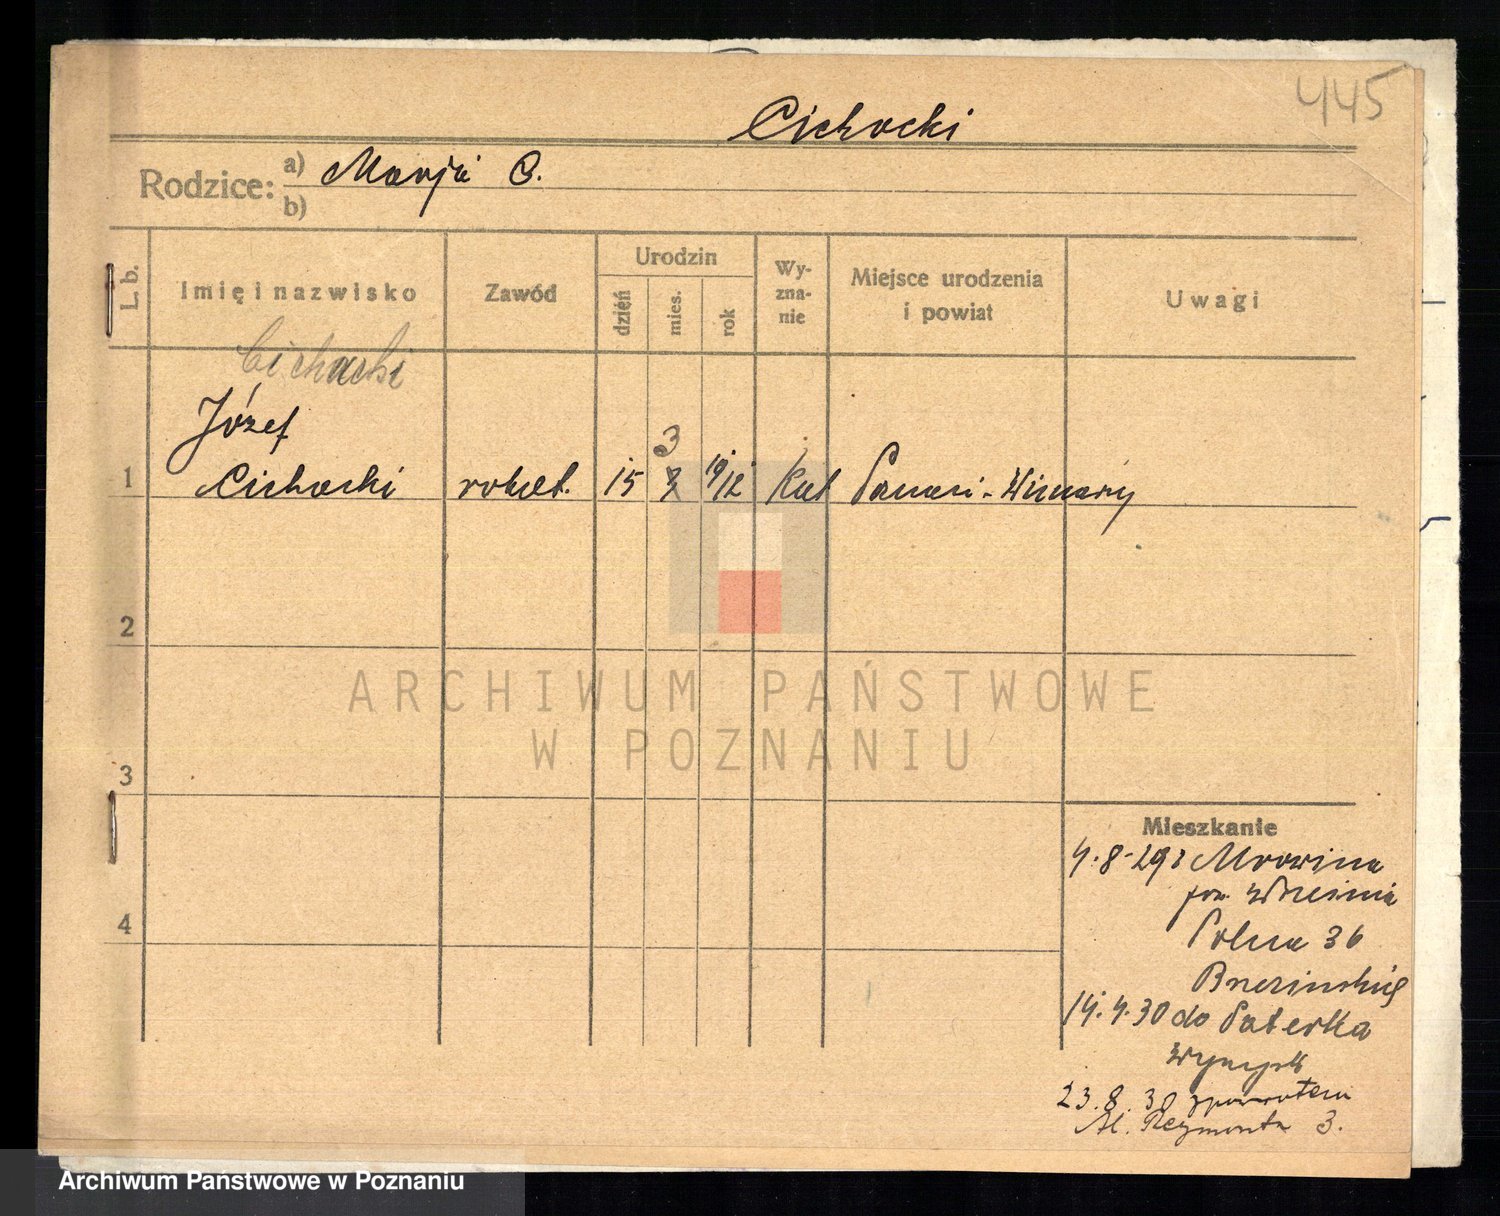 445
Cichocki
Rodzice: a) Marja C.
b)
L. b.
Imię i nazwisko
Zawód
Urodzin
dzień
mies.
rok
Wy-
zna-
nie
Miejsce urodzenia
i powiat
Uwagi
Cichocki
Józef
3
1 Cichocki robot. 15 19/12 Kat Poznań - Winiary
2
3
4
ARCHIWUM PAŃSTWOWE
W POZNANIU
Mieszkanie
4.8.29 z Mrowina
pow. Września
Polna 36
14.4.30 do
23.8.30 zpowrotem
Al. Reymonta 3.
Archiwum Państwowe w Poznaniu